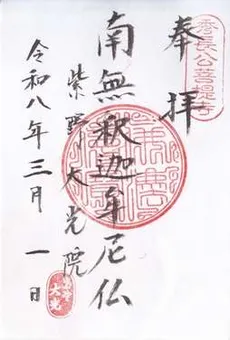 奉拝
秀長公菩提寺
南無釈迦牟尼仏
紫野大光院
令和八年三月一日